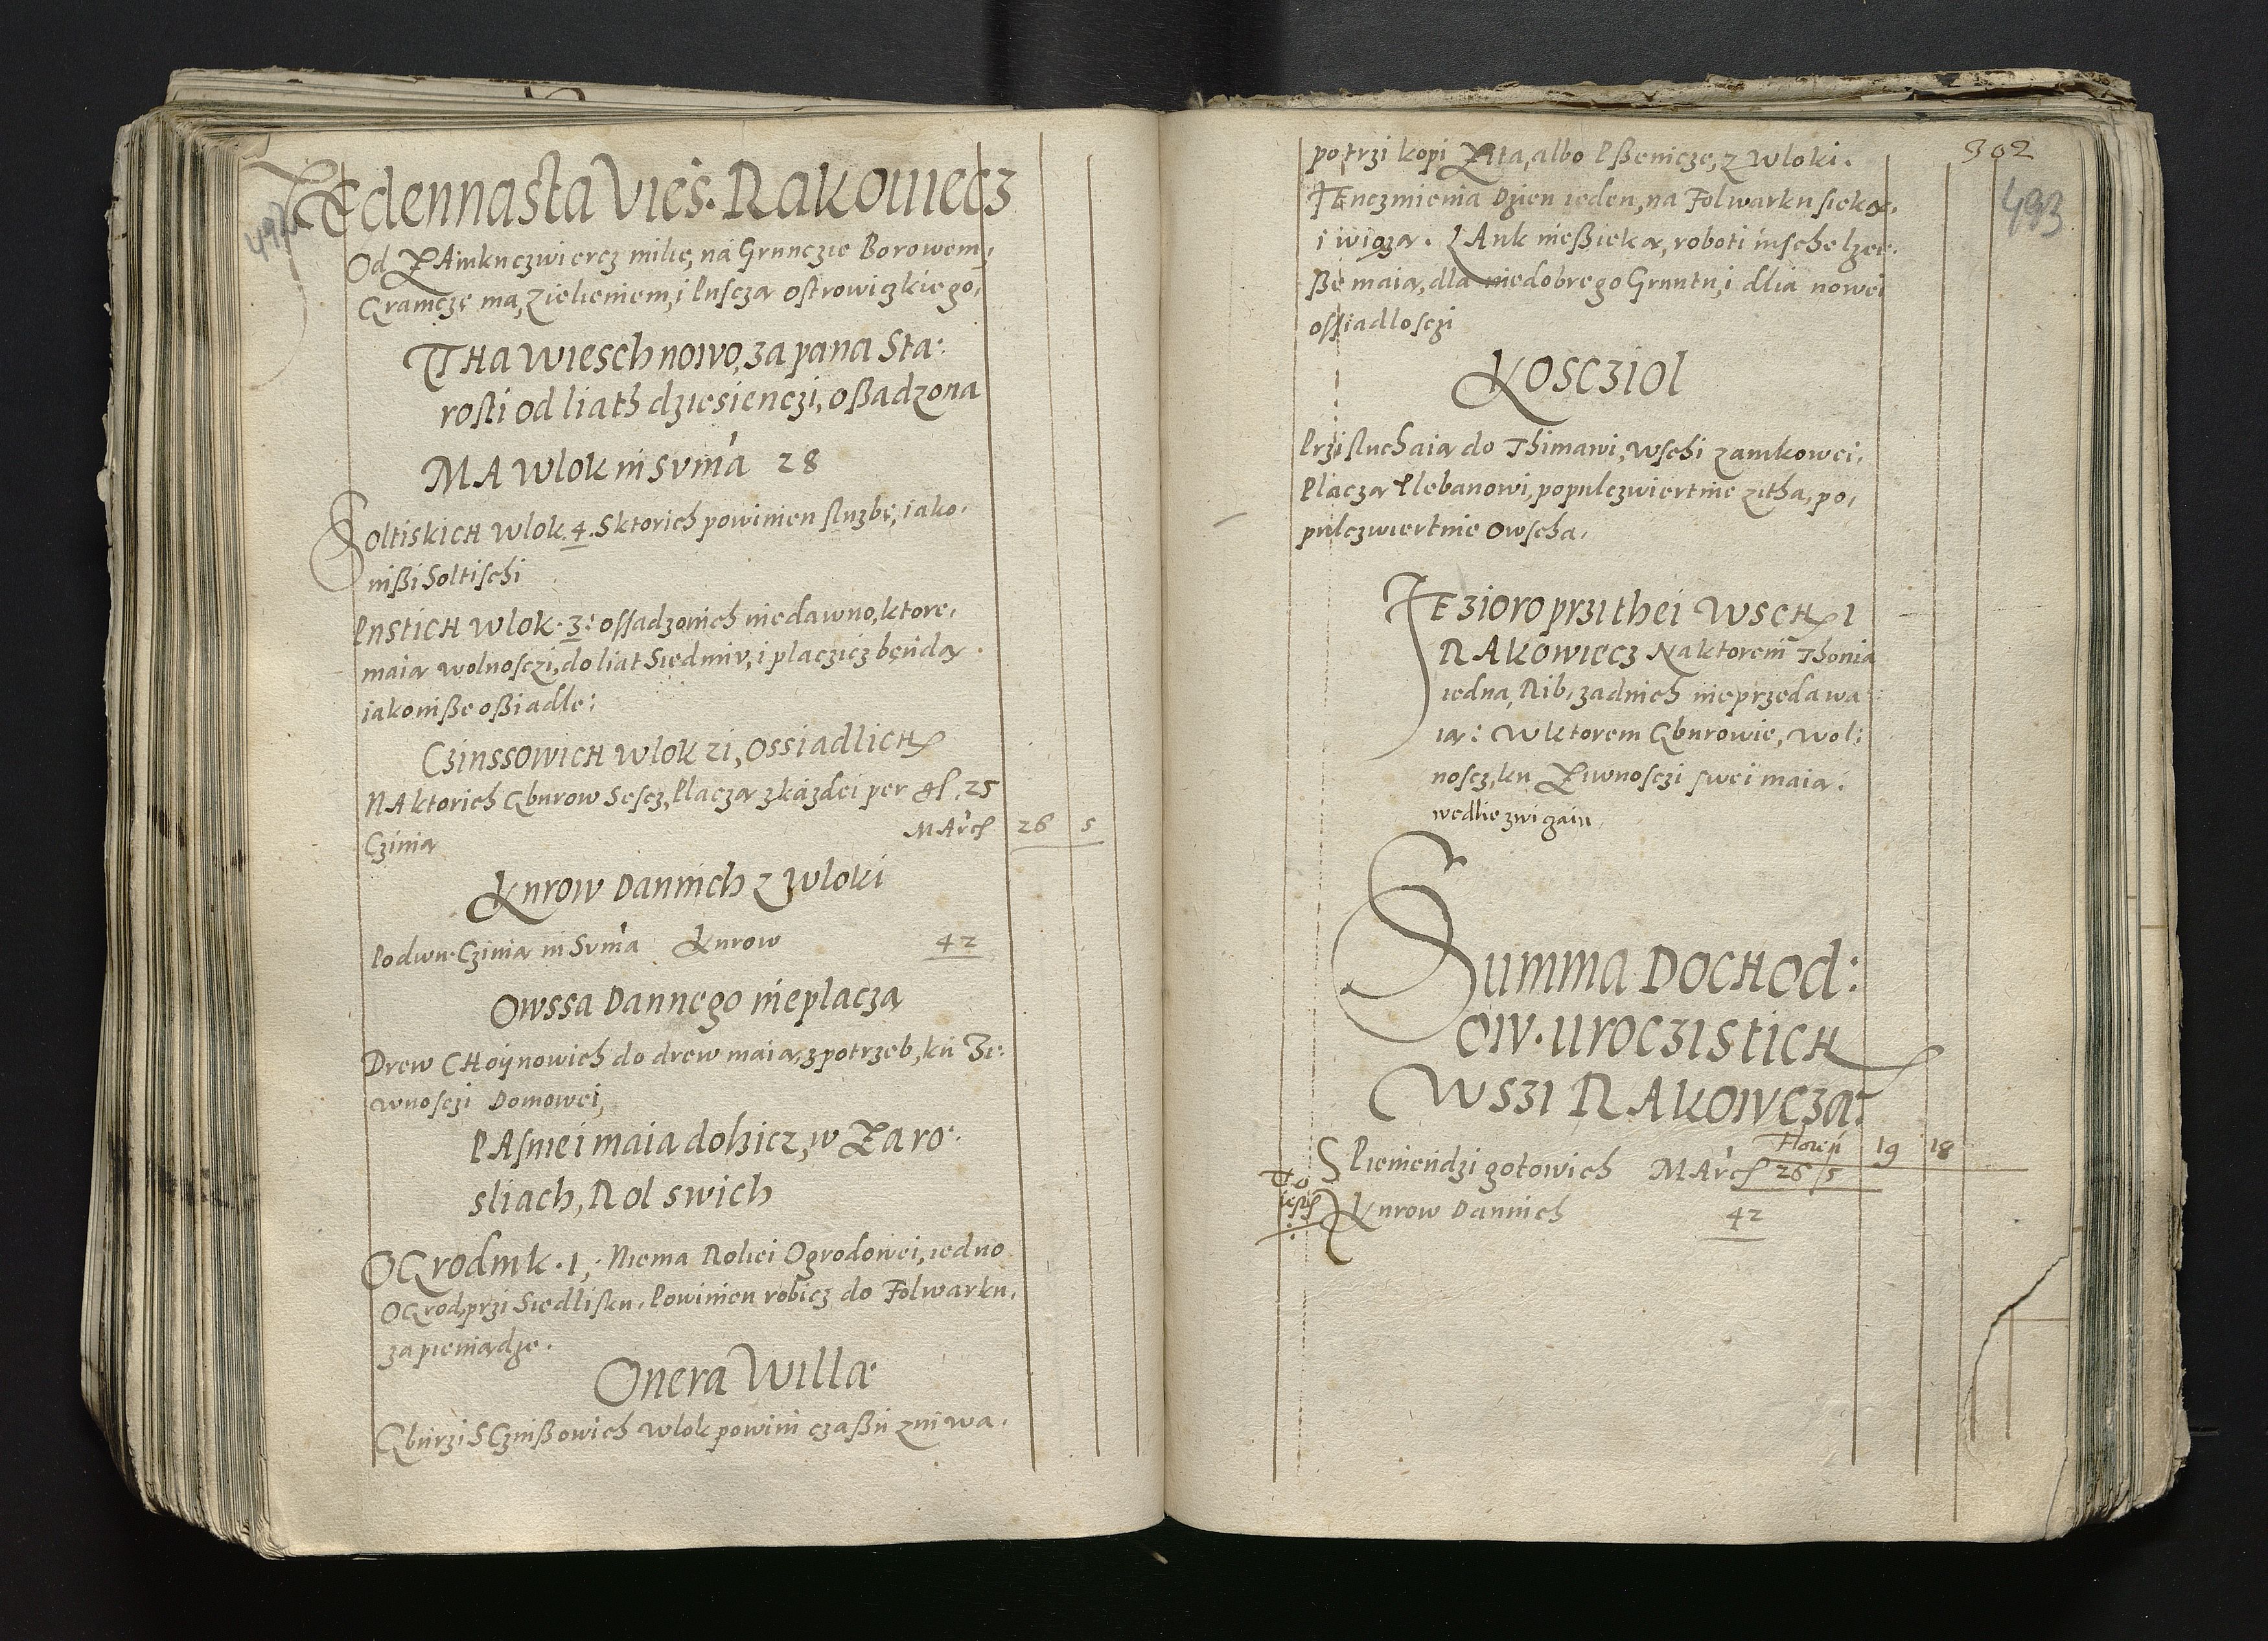 JEdennasta Vies. Rakowiecz
Od ZAmku czwiercz milie, na Grunczie Borowem,
Gramcze ma, Zielieniem, i Puscza ostrowiczkiego,
THa wiesch nowo, za pana Sta:
rosti od liath dziesienczi, oßadzona
MA wlok in Suma 28
SoltiskicH wlok. 4. Sktorich powinien sluzbe, iako,
inßi Soltischi
PusticH wlok. 3: ossadzonich niedawno, ktore,
maia wolnosczi, do liat Siedmiv, i placzicz bęnda
iako insze oßiadle:
CzinssowicH wlok 21, ossiadlicH
NAktorich Gburow Sescz, Placza zkázdei per gl. 25
Czinia MArcß 26 5
Kurow Dannich z wloki
Podwu. Czinia in Suma Kurow 42
Owssa Dannego nieplacza
Drew CHoijnowich do drew maia, z potrzeb, ku Zi:
wnosczi Domowei,
PAsniei maia dobicz, w Zaro:
sliach, Rol swich
OGrodnik. 1, Niema Roliei Ogrodowei, iedno
OGrod, przi Siedlisku, Powinien robicz do Folwarku,
za pieniadze.
Onera Willæ
Gburzi SCzinßowich wlok powini czaßu zniwa,
302
493
potrzi kopi Zita, albo Pßenicze, z wloki.
JEnczmienia Dzien ieden, na Folwarku sieka,
i wioza. LAuk nießieka, roboti insche lzee:
ße maia, dla niedobrego Gruntu, i dlia nowei
ossiadlosczi
Kosczioł
Przisluchaia do Thimawi, wschi zamkowei,
Placza Plebanowi, populczwiertnie zitha, po,
pulczwiertnie Owscha,
JEzioro przi thei WscHi
RAkowiecz Naktorem Thonia
iedna, Rib, zadnich nieprzedawa
ia: Wktorem Gburowie, wol:
noscz, ku Ziwnosczi swei maia.
wedlie zwigaiu,
Summa DocHod:
ow. uroczisticH
wszi RAkowcza:
To iesth
Pieniendzi gotowich MArcß 26/5 Floren 19 18
Kurow Dannich 42